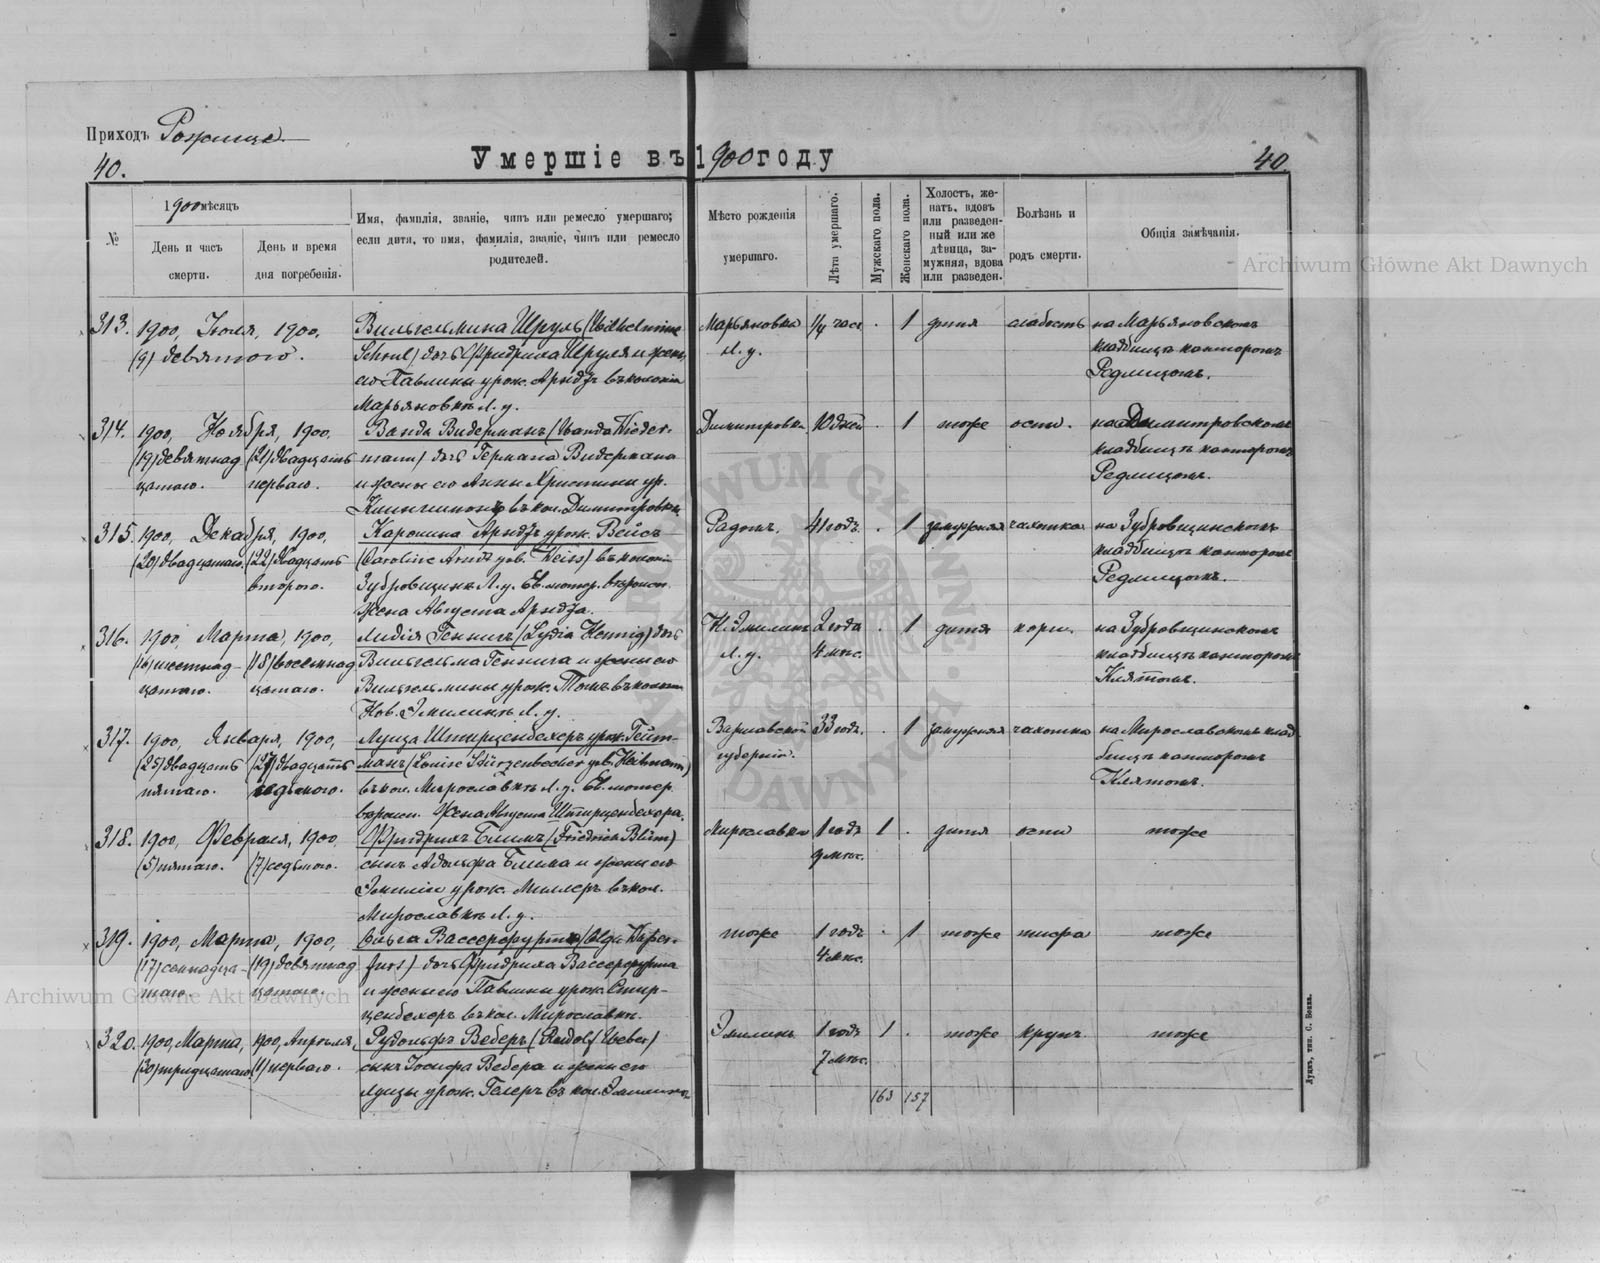 Приходъ Рожище
40.
Умершіе въ 1900 году
40.
№
1900 мѣсяцъ
День и часъ смерти.
День и время дня погребенія.
Имя, фамилія, званіе, чинъ или ремесло умершаго;
если дитя, то имя, фамилія, званіе, чинъ или ремесло
родителей.
Мѣсто рожденія
умершаго.
Лѣта умершаго.
Мужскаго пола.
Женскаго пола.
Холостъ, же-
натъ, вдовъ
или разведен-
ный или же
дѣвица, за-
мужняя, вдова
или разведен.
Болѣзнь и
родъ смерти.
Общія замѣчанія.
313. 1900, Іюля, 1900, Вильгельмина Шруль (Wilhelmine Марьяновка 1/4 час. . 1 дитя слабость на Марьяновскомъ
(9) девятого. Schrul) дочь Фридриха Шруля и жены Л. у. кладбищѣ канторомъ
его Павлины урож. Арндтъ въ колоніи Редлицомъ.
Марьяновкѣ Л. у.
314. 1900, Ноября, 1900, Ванда Видерманъ (Wanda Wieder- Димитровка 10 дней . 1 тоже оспы. на Димитровскомъ
(19) девятнад (21) двадцать mann) дочь Германа Видермана кладбищѣ канторомъ
цатаго. перваго. и жены его Анны Христины ур. Редлицомъ.
въ кол. Димитровкѣ
315. 1900, Декабря, 1900, Каролина Арндтъ урож. Вейсъ Радомъ. 41 годъ. . 1 замужняя чахотка на Зубровщинскомъ
(20) двадцатаго. (22) двадцать (Caroline Arndt geb. Weiss) въ колоніи кладбищѣ канторомъ
второго. Зубровщинѣ Л. у. Ев. лютер. вѣроисп. Редлицомъ.
Жена Августа Арндта.
316. 1900, Марта, 1900, Лидія Геннигъ (Lydia Hennig) дочь Н. Эмилинъ 2 года . 1 дитя кори. на Зубровщинскомъ
(16) шестнад- (18) восемнад Вильгельма Геннига и жены его Л. у. 4 мѣс. кладбищѣ канторомъ
цатаго. цатаго. Вильгельмины урож. Томъ въ колоніи Клятомъ.
Нов. Эмилинѣ Л. у.
317. 1900, Января, 1900, Луиза Штирценбехеръ урож. Гейт- Варшавской 33 года. . 1 замужняя чахотка на Мирославскомъ клад-
(25) двадцать (27) двадцать манъ (Louise Stürzenbecher geb. Heitmann) губерніи. бищѣ канторомъ
пятаго. седьмого. въ кол. Мирославкѣ Л. у. Ев. лютер. Клятомъ.
вѣроисп. Жена Августа Штирценбехера.
318. 1900, Февраля, 1900 Фридрихъ Блимъ (Friedrich Blüm) Мирославка 1 годъ 1 . дитя оспы тоже
(5) пятаго. (7) седьмого. сынъ Адольфа Блима и жены его 9 мѣс.
Эмиліи урож. Миллеръ въ кол.
Мирославкѣ Л. у.
319. 1900, Марта, 1900, Ольга Вассерфуртъ (Olga Wasser- тоже 1 годъ . 1 тоже тифа тоже
(17) семнадца- (19) девятнад дочь Фридриха Вассерфурта 4 мѣс.
таго. цатаго. и жены его Павлины урож. Стир-
ценбехеръ въ кол. Мирославкѣ.
320. 1900, Марта, 1900, Апрѣля, Рудольфъ Веберъ (Rudolf Weber) Эмилинъ 1 годъ 1 . тоже крупъ тоже
(30) тридцатаго. (1) перваго. сынъ Іосифа Вебера и жены его 7 мѣс.
Луизы урож. Гелеръ въ кол. Эмилинѣ
163 157
Луцкъ, тип. С. Бенка.
Archiwum Główne Akt Dawnych
Archiwum Główne Akt Dawnych